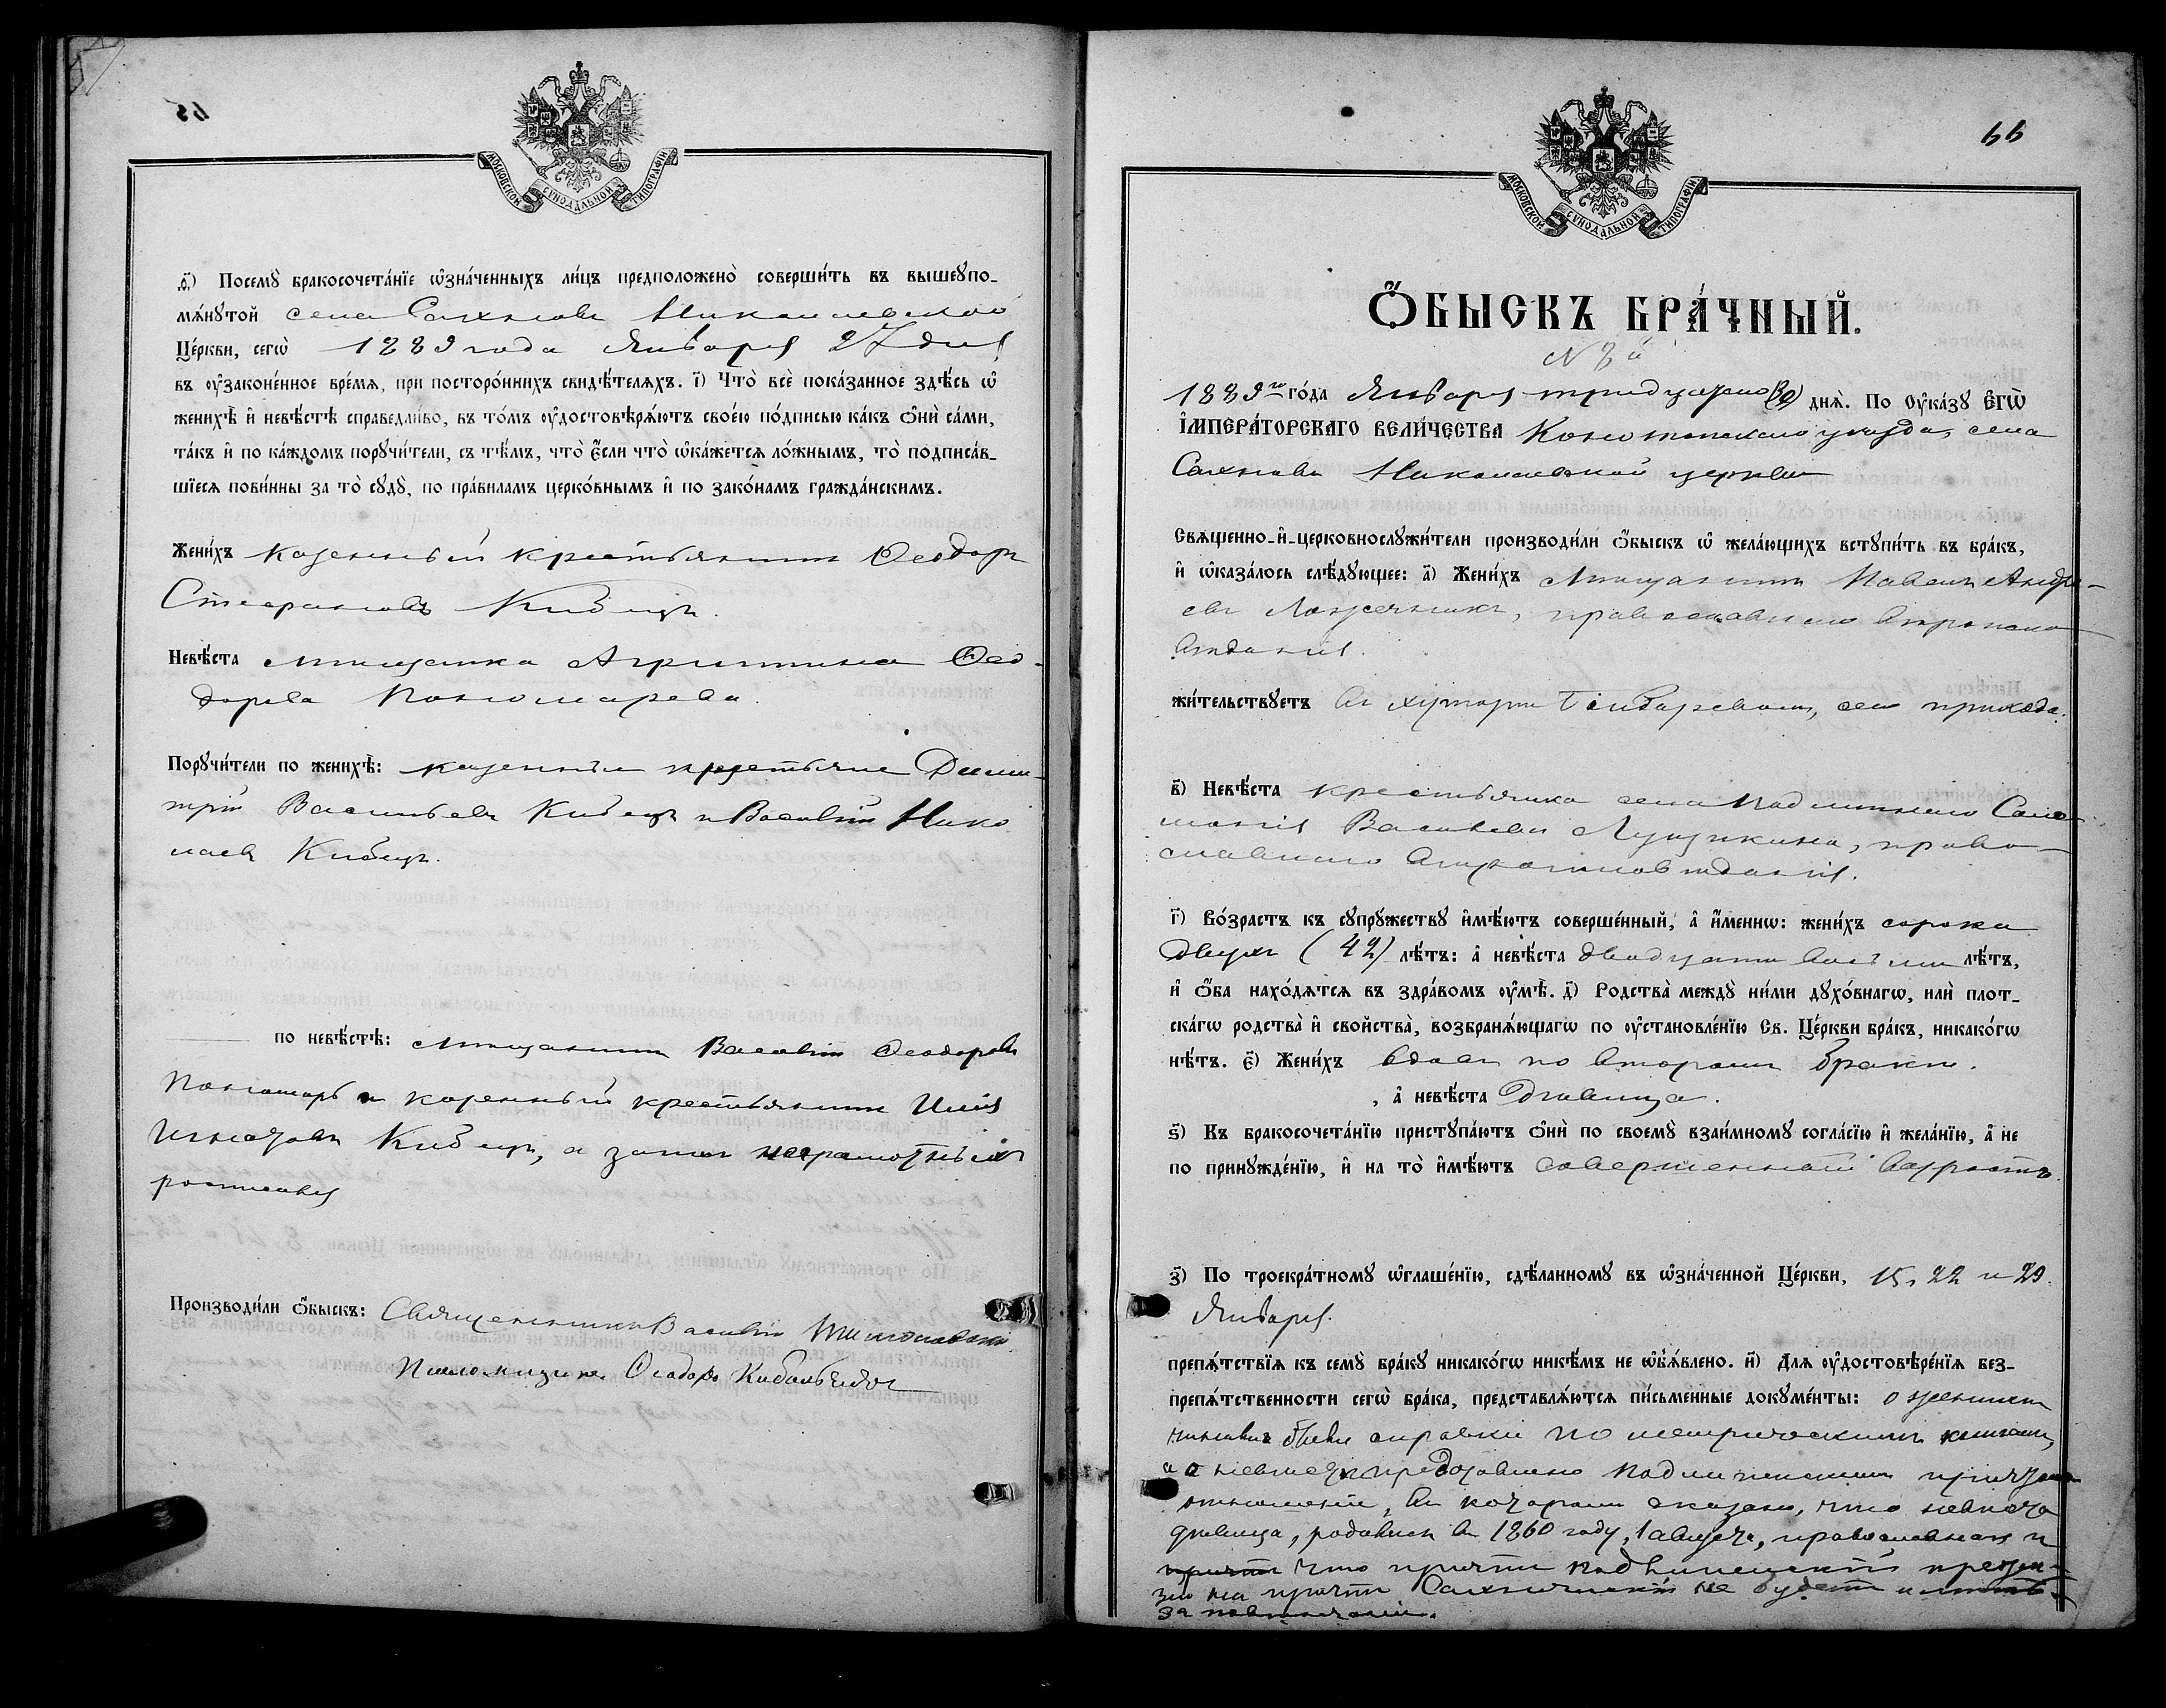 65
МОСКОВСКОЙ СѴНОДАЛЬНОЙ ТИПОГРАФІИ
д҃і) Посемꙋ̀ бракосочета́нїе ѡ҆зна́ченныхъ ли́цъ предположено̀ соверши́ть въ вышеꙋпо-
мѧ́нꙋтой села Сахновъ Николаевской
Це́ркви, сегѡ̀ 1889 года Января 27 дня
въ ᲂу҆законе́нное вре́мѧ, при посторо́ннихъ свидѣ́телѧхъ. і҃) Что̀ всѐ пока́занное здѣ́сь ѡ҆
женихѣ̀ и҆ невѣ́стѣ справедли́во, въ то́мъ ᲂу҆достовѣрѧ́ютъ свое́ю по́дписью ка́къ ѻ҆нѝ са́ми,
та́къ и҆ по ка́ждомъ порꙋчи́тели, съ тѣ́мъ, что̀ є҆́сли что̀ ѡ҆ка́жетсѧ ло́жнымъ, то̀ подписа́в-
шїесѧ пови́нны за то̀ сꙋдꙋ̀, по пра́виламъ церко́внымъ и҆ по зако́намъ гражда́нскимъ.
Жени́хъ казенный крестьянинъ Ѳеодоръ
Стефановъ Кибецъ.
Невѣ́ста мѣщанка Агрипина Ѳео-
дорова Пономарева.
Порꙋчи́тели по женихѣ̀: казенные крестьяне Дими-
трій Васильевъ Кибецъ и Василій Нико
лаевъ Кибецъ.
по невѣ́стѣ: мѣщанинъ Василій Ѳеодоровъ
Пономарь и казенный крестьянинъ Илія
Игнатовъ Кибецъ, а за неграмотныхъ
росписался
Производи́ли ѻ҆́быскъ: Священникъ Василій
Псаломщикъ Ѳеодоръ
66
МОСКОВСКОЙ СѴНОДАЛЬНОЙ ТИПОГРАФІИ
Ѻ҆́БЫСКЪ БРА́ЧНЫЙ.
N 8й
1889го го́да Января тридцатаго (30) днѧ̀. По Оу҆ка́зꙋ Є҆гѡ̀
І҆мпера́торскагѡ вели́чества Конотопскаго уѣзда, села
Сахновъ Николаевской церкви
Свѧще́нно-и҆-церковнослꙋжи́тели производи́ли ѻ҆́быскъ ѡ҆ жела́ющихъ встꙋпи́ть въ бра́къ,
и҆ ѡ҆каза́лось слѣ́дꙋющее: а҃) Жени́хъ мѣщанинъ Павелъ Андре-
евъ православнаго вѣроиспо
вѣданія.
жи́тельствꙋетъ въ хуторѣ Бондаревомъ, сего прихода.
в҃) Невѣ́ста крестьянка села Подлипнаго Соло-
монія Васильева Луцыкина, право-
славнаго вѣроисповѣданія.
г҃) Во́зрастъ къ сꙋпрꙋ́жествꙋ и҆мѣ́ютъ соверше́нный, а҆ и҆́менно: жени́хъ сорока
двухъ (42) лѣ́тъ: а҆ невѣ́ста двадцати восьми лѣ́тъ,
и҆ ѻ҆́ба нахо́дѧтсѧ въ здра́вомъ ᲂу҆мѣ̀. д҃) Родства̀ междꙋ̀ ни́ми дꙋхо́внагѡ, илѝ плот-
ска́гѡ родства̀ и҆ свойства̀, возбранѧ́ющагѡ по ᲂу҆становле́нїю Св. Це́ркви бра́къ, никако́гѡ
нѣ́тъ. є҃) Жени́хъ вдовъ по второмъ бракѣ.
, а҆ невѣ́ста Дѣвица.
ѕ҃) Къ бракосочета́нїю пристꙋпа́ютъ ѻ҆нѝ по своемꙋ̀ взаи́мномꙋ согла́сїю и҆ жела́нїю, а҆ не
по принꙋжде́нїю, и҆ на то̀ и҆мѣ́ютъ совершенный возрастъ.
з҃) По троекра́тномꙋ ѡ҆глаше́нїю, сдѣ́ланномꙋ въ ѡ҆зна́ченной Це́ркви, 15, 22 и 29.
Января.
препѧ́тствїѧ къ семꙋ̀ бра́кꙋ никако́гѡ никѣ́мъ не ѡ҆б̾ѧ́влено. и҃) Длѧ ᲂу҆достовѣре́нїѧ без-
препѧ́тственности сегѡ̀ бра́ка, представлѧ́ютсѧ пи́сьменные докꙋме́нты: о женихѣ
справки по метрическимъ книгамъ,
а о невѣстѣ представлено Подлипенскимъ причтомъ
отношеніе, въ которомъ сказано, что невѣста
дѣвица, родилась въ 1860 году, 1 августа, православная и
что причтъ Подлипенскій претен-
зію на причтъ Сахновскій не будетъ имѣть
за повѣнчаніе.